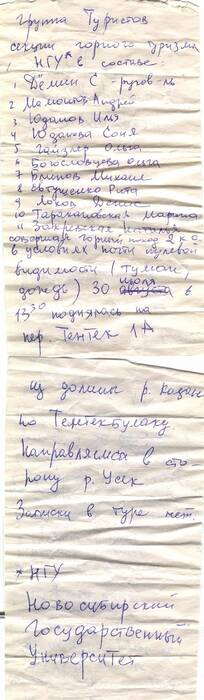 группа Туристов
секции горного туризма
НГУ* в составе:
1 Дёмин С - руков-ль
2 Мамонтов Андрей
3 Юданов Илья
4 Юданова Соня
5 Гайзлер Ольга
6 Богословцева Ольга
7 Блинов Михаил
8 Евтушенко Рита
9 Лохов Денис
10 Таралановская Марина
11 Закржевская Наталия
совершая горный поход 2 к.с.
в условиях почти нулевой
видимости (туман,
дождь) 30 июля в
13 30 поднялась на
пер Тентек 1А
из долины р.
по Тентекбулаку.
Направляемся в сто-
рону р. Усек
Записки в туре нет.
* НГУ
Новосибирский
Государственный
Университет